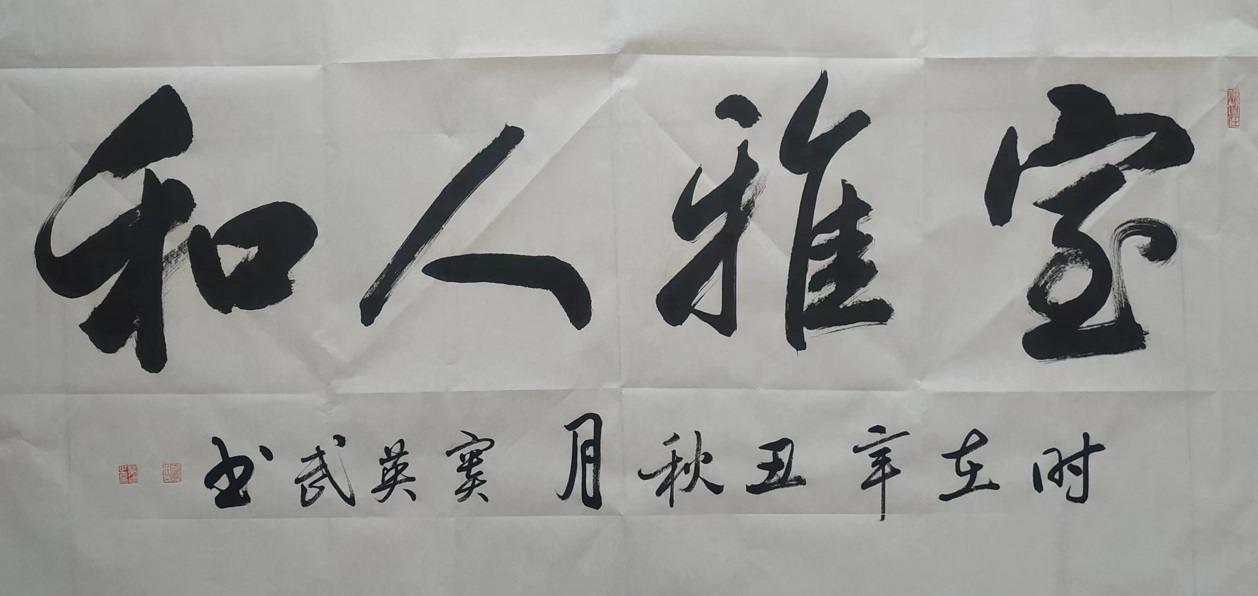 室雅人和
时在辛丑秋月窦英武书